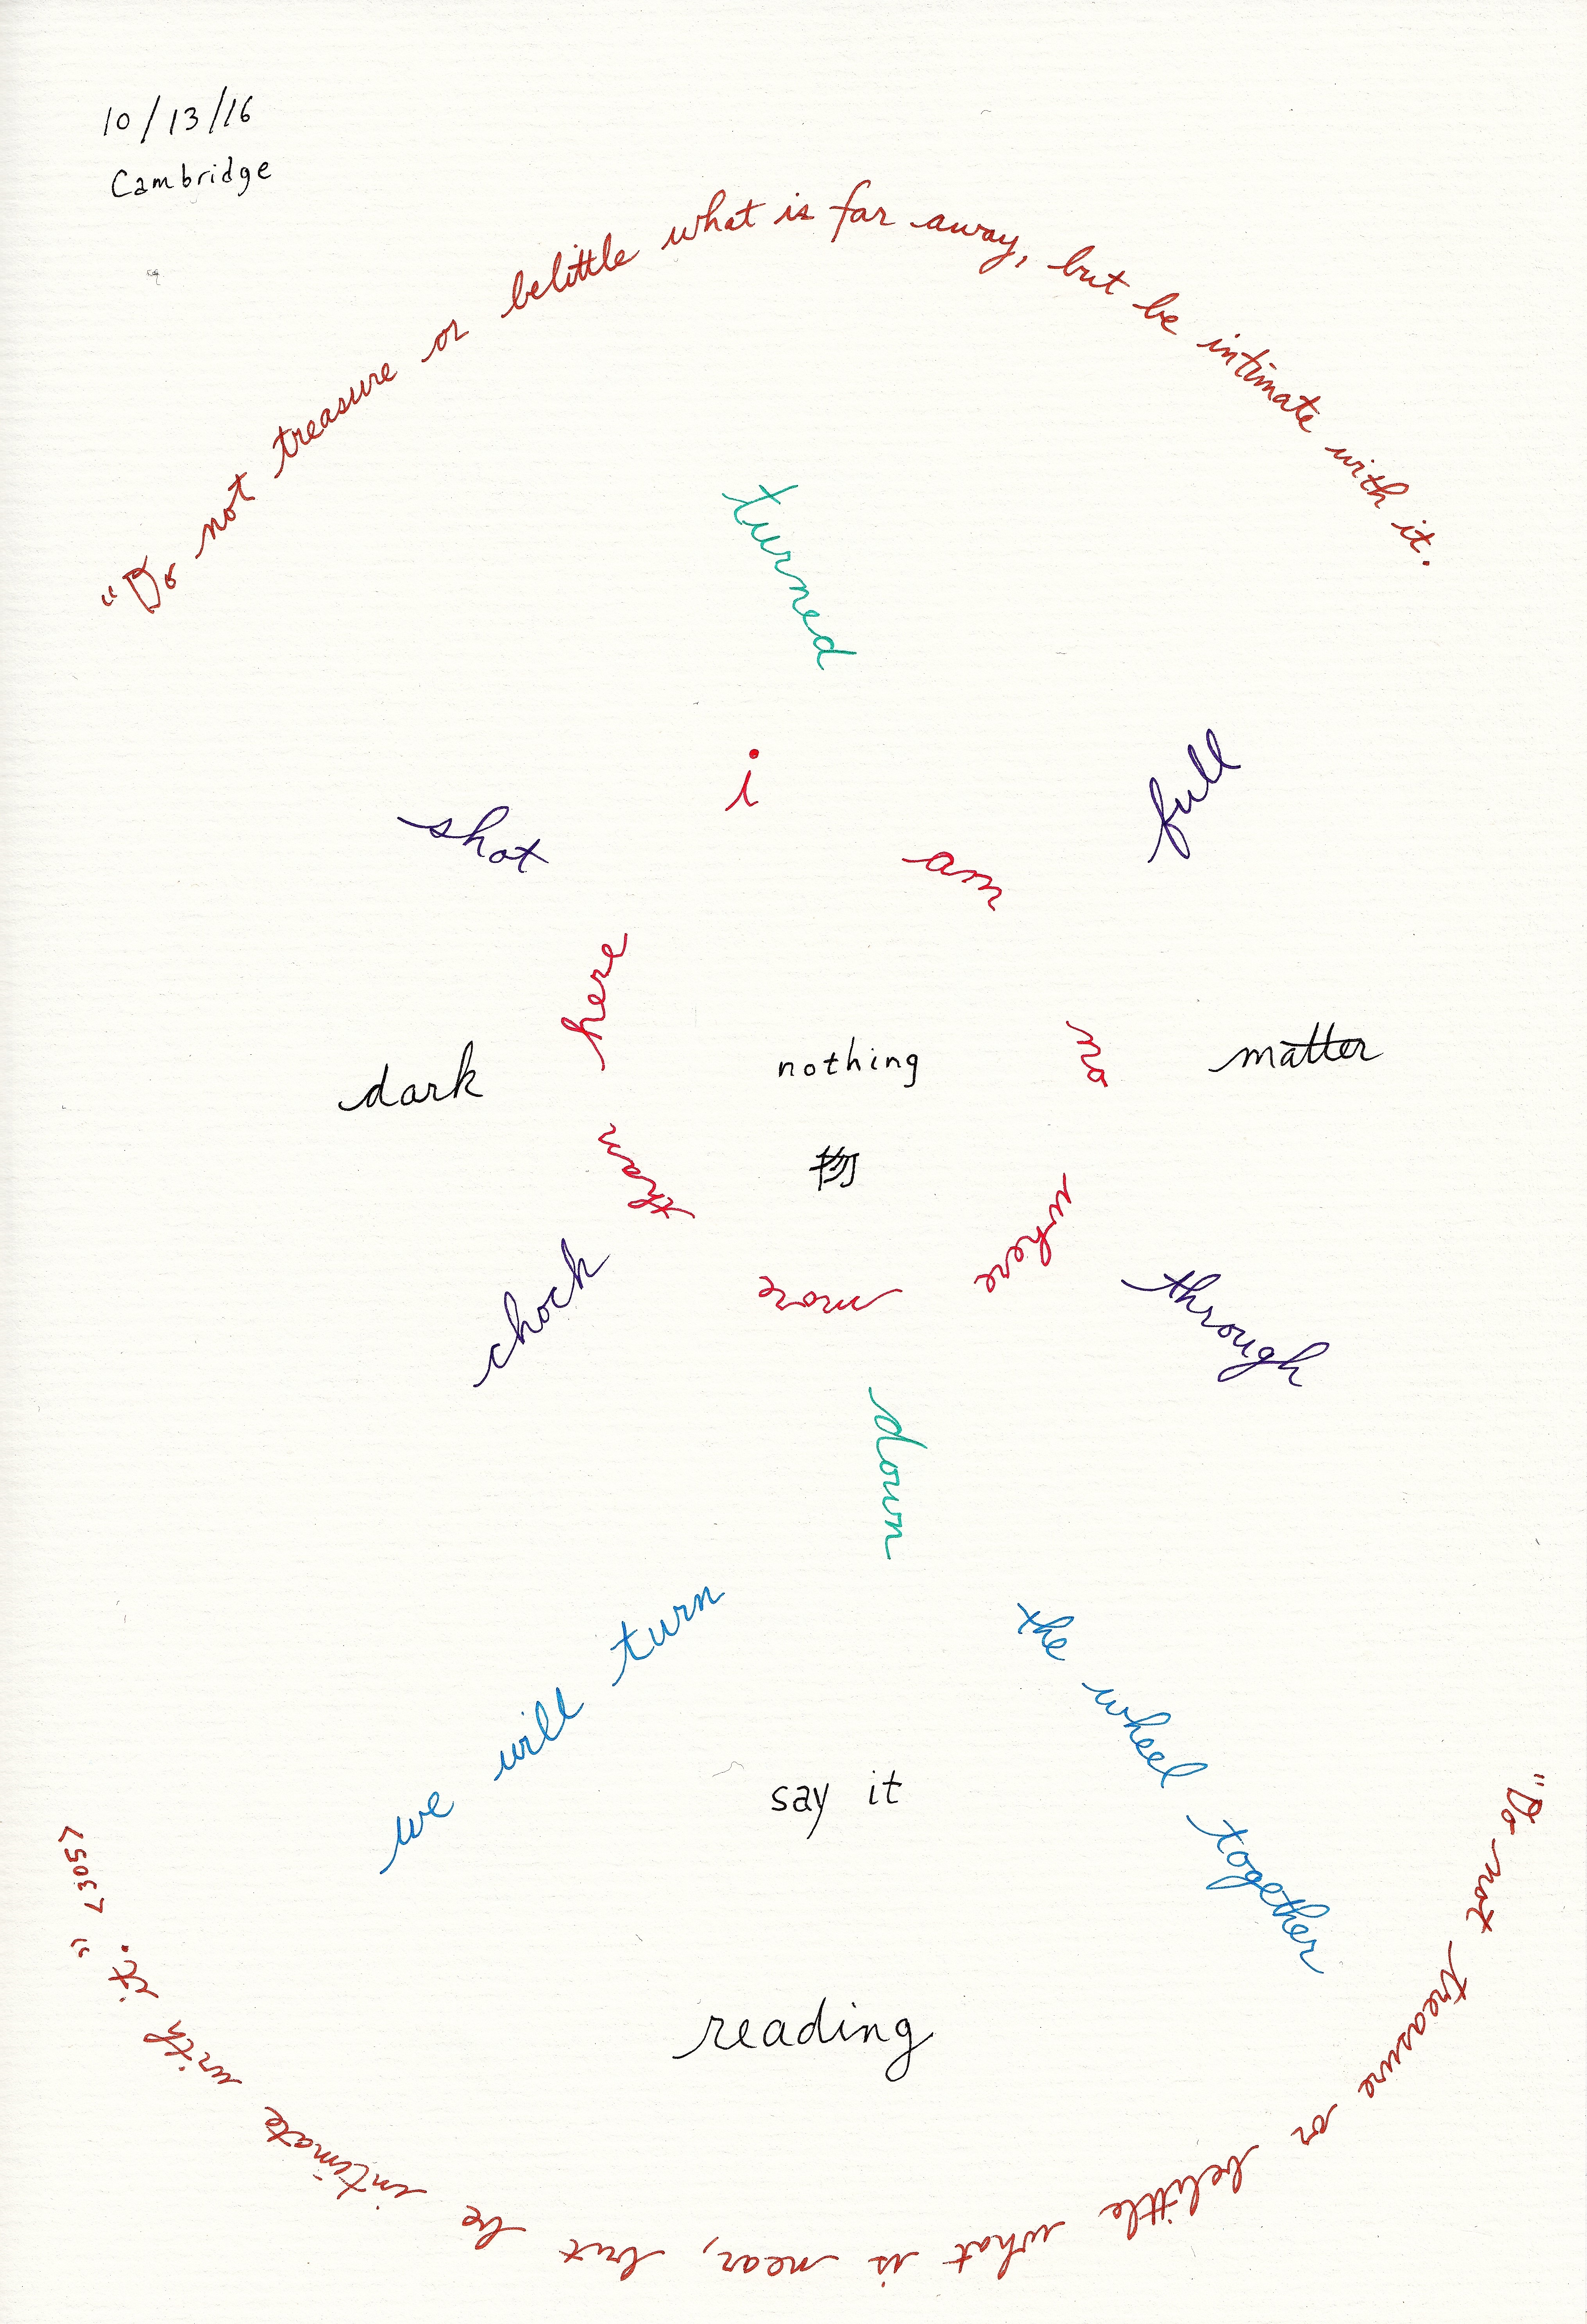 10/13/16
Cambridge
"Do not treasure or belittle what is far away, but be intimate with it.
turned
i
am
no
where
more
than
here
shot
full
dark
nothing
matter
物
chock
through
down
we will turn
the wheel together
say it
reading
"Do not treasure or belittle what is near, but be intimate with it." <305>